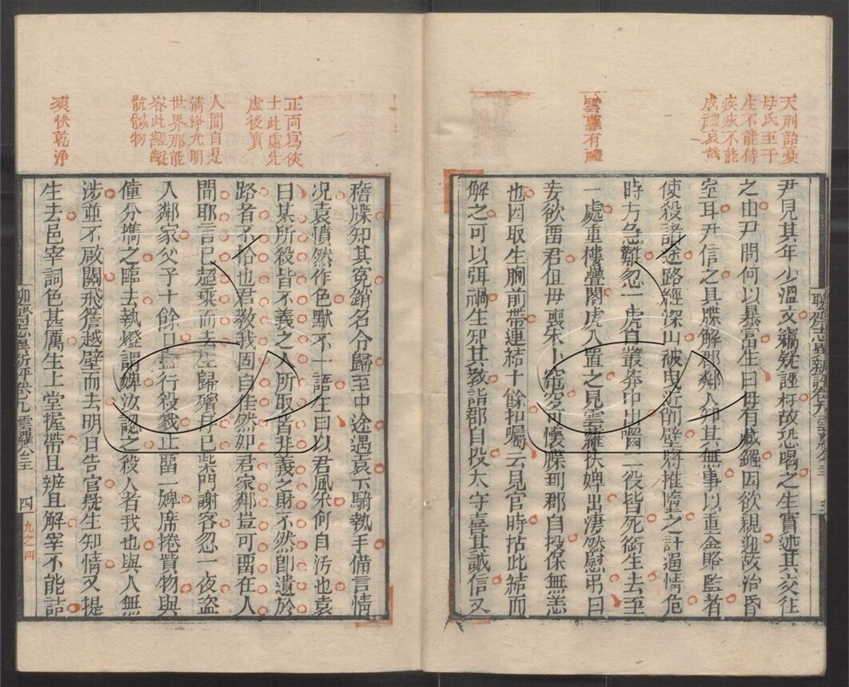 天刑詒憂
母氏至于
生不能侍
疾疾不能
成禮哀哉
雲蘿有禮
尹見其年少溫文
之由尹問何以暴富生曰毋有藏鏹因欲親迎故治昏
室耳尹信之具牒解郡鄰人知其無事以重金賂監者
使殺諸途路經深山被曳近削壁將推墮之計逼情危
時方急難忽一虎自叢莽中出囓二役皆死銜生去至
一處重樓疊閣虎入置之見雲蘿扶婢出淒然慰弔曰
妾欲留君但母喪未卜窀穸可懷牒到郡自投保無恙
也因取生胸前帶連結十餘扣囑云見官時拈此結而
解之可以弭禍生如其教詣郡自投太守喜其誠信又
聊齋志異新評卷九 雲蘿公主
正面寫俠
士此處先
虛後實
人間自是
清淨光明
世界那能
容此齷齪
骯髒物
爽快乾淨
稽牒知其冤銷名令歸至中途遇袁下騎執手備言情
況袁憤然作色默不一語生曰以君風采何自汚也袁
曰某所殺皆不義之人所取皆非義之財不然即遺於
路者不拾也君教我固自佳然如君家鄰豈可留在人
間耶言已超乘而去生歸殯母已杜門謝客忽一夜盜
入鄰家父子十餘口盡行殺戮止留一婢席捲貲物與
僮分攜之臨去執燈謂婢汝認之殺人者我也與人無
涉並不啟關飛簷越壁而去明日告官疑生知情又捉
生去邑宰詞色甚厲生上堂握帶且辨且解宰不能詰
聊齋志異新評卷九 雲蘿公主
四
九之四